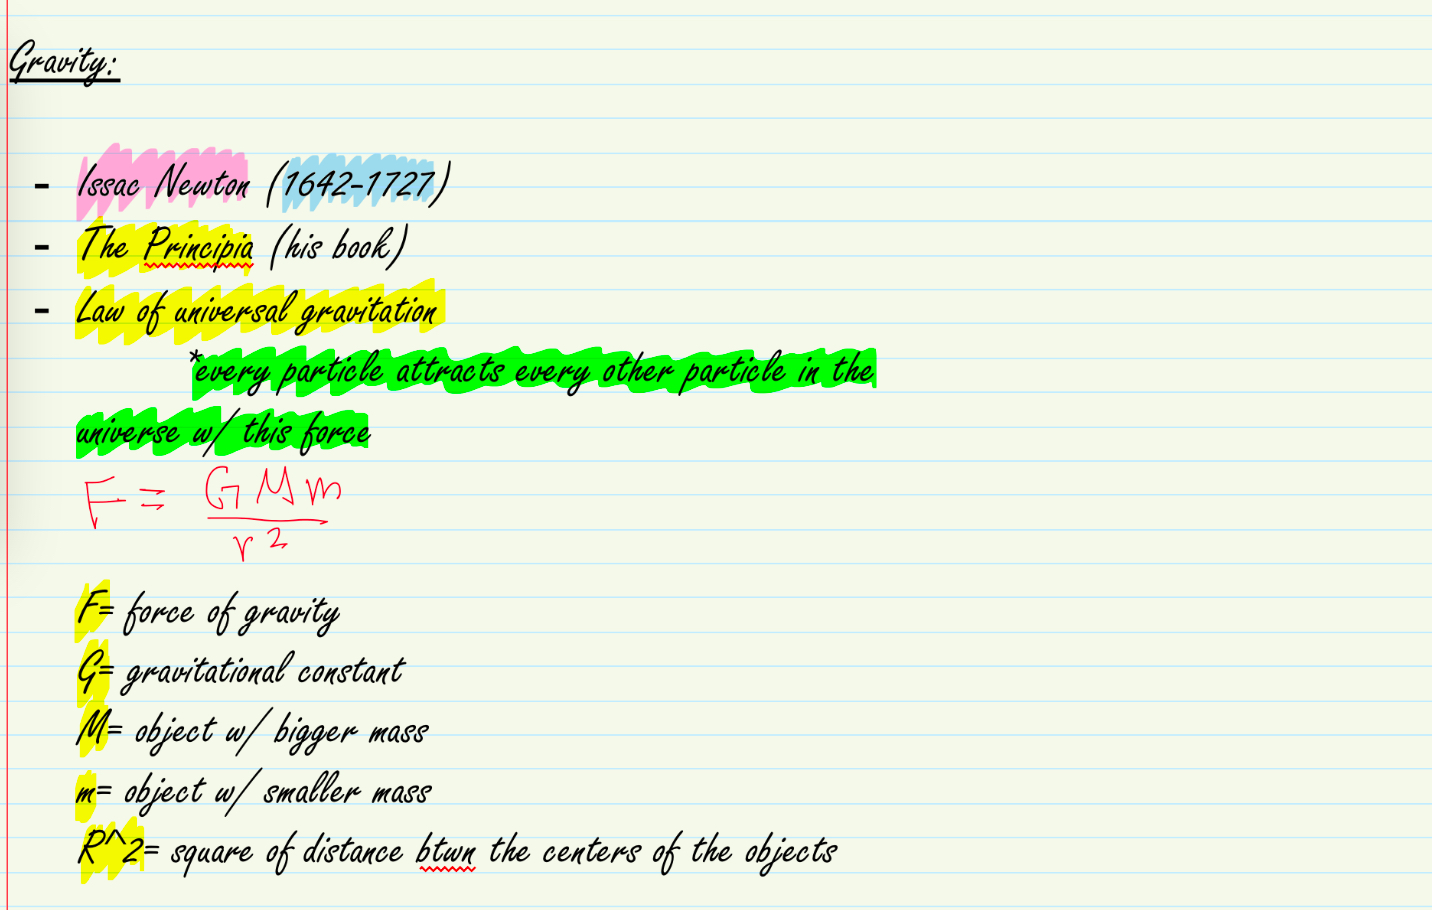 Gravity:
- Issac Newton (1642-1727)
- The Principia (his book)
- Law of universal gravitation
*every particle attracts every other particle in the
universe w/ this force
F = GMm / r²
F= force of gravity
G= gravitational constant
M= object w/ bigger mass
m= object w/ smaller mass
R^2= square of distance btwn the centers of the objects